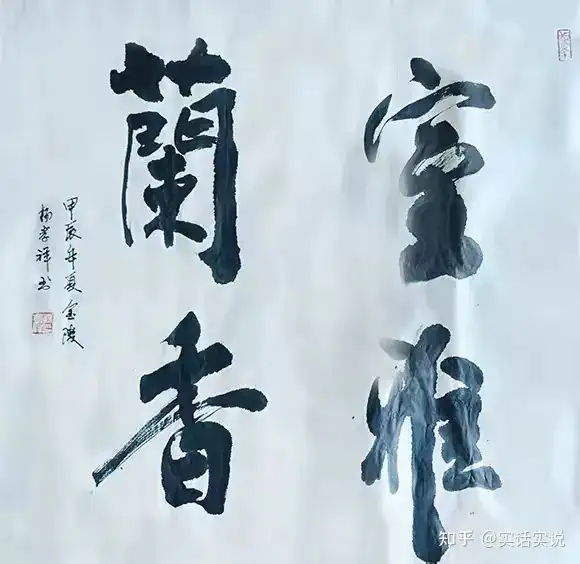 室雅
蘭香
甲辰年夏金陵
杨孝祥书
知乎 @实话实说